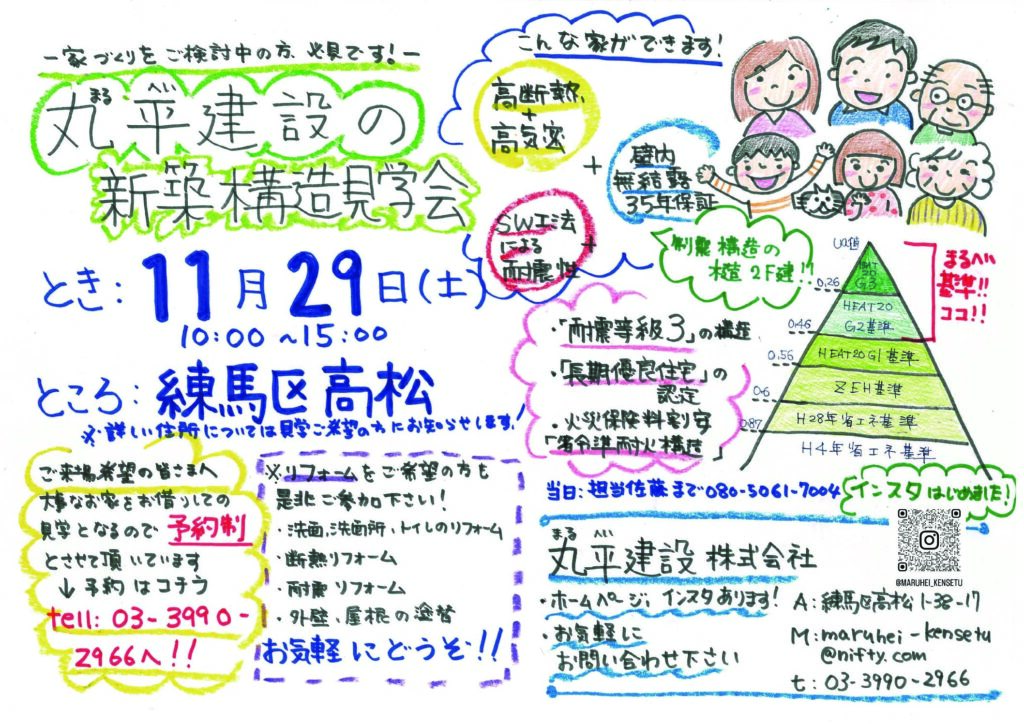 －家づくりをご検討中の方、必見です！－
まる べい
丸平建設の
新築構造見学会
とき：11月29日(土)
10:00～15:00
ところ：練馬区高松
※詳しい住所については見学ご希望の方にお知らせします！
こんな家ができます！
高断熱
+
高気密
+
壁内
無結露
35年保証
+
SW工法
による
耐震性
制震構造の
木造2F建！！
・「耐震等級3」の構造
・「長期優良住宅」の
認定
・火災保険料割安
「省令準耐火構造」
UA値
HEAT
20
G3
0.26
HEAT20
G2基準
0.46
HEAT20G1基準
0.56
ZEH基準
0.6
H28年省エネ基準
0.87
H4年省エネ基準
まるべい
基準!!
ココ!!
ご来場希望の皆さまへ
大事なお家をお借りしての
見学となるので予約制
とさせて頂いています
↓予約はコチラ
tell: 03-3990-
2966へ!!
※リフォームをご希望の方も
是非ご参加下さい！
・洗面、洗面所、トイレのリフォーム
・断熱リフォーム
・耐震リフォーム
・外壁、屋根の塗替
お気軽にどうぞ!!
当日：担当佐藤まで080-5061-7004
インスタはじめました！
@MARUHEI_KENSETU
まる
丸平建設株式会社
・ホームページ、インスタあります！
・お気軽に
お問い合わせ下さい
A：練馬区高松1-38-17
M：maruhei-kensetu
@nifty.com
t：03-3990-2966